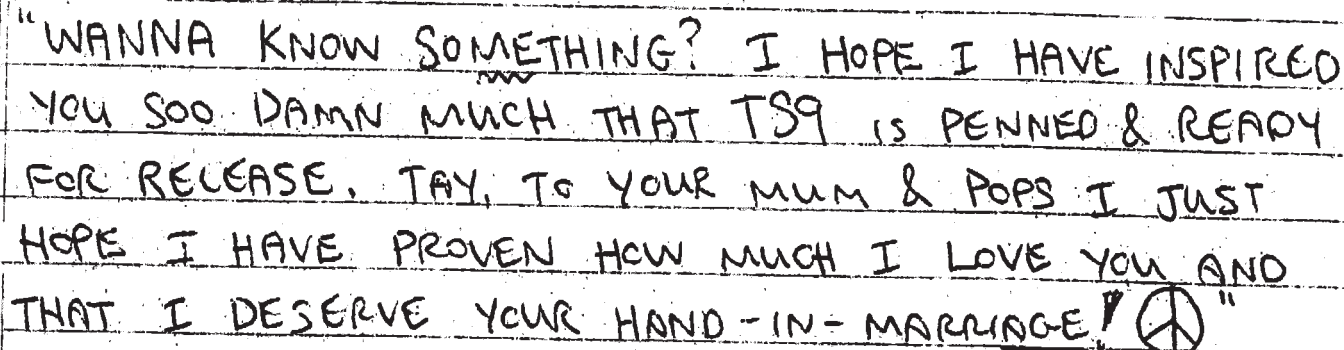 "WANNA KNOW SOMETHING? I HOPE I HAVE INSPIRED
YOU SOO DAMN MUCH THAT TS9 IS PENNED & READY
FOR RELEASE. TAY, TO YOUR MUM & POPS I JUST
HOPE I HAVE PROVEN HOW MUCH I LOVE YOU AND
THAT I DESERVE YOUR HAND-IN-MARRIAGE! ☮"